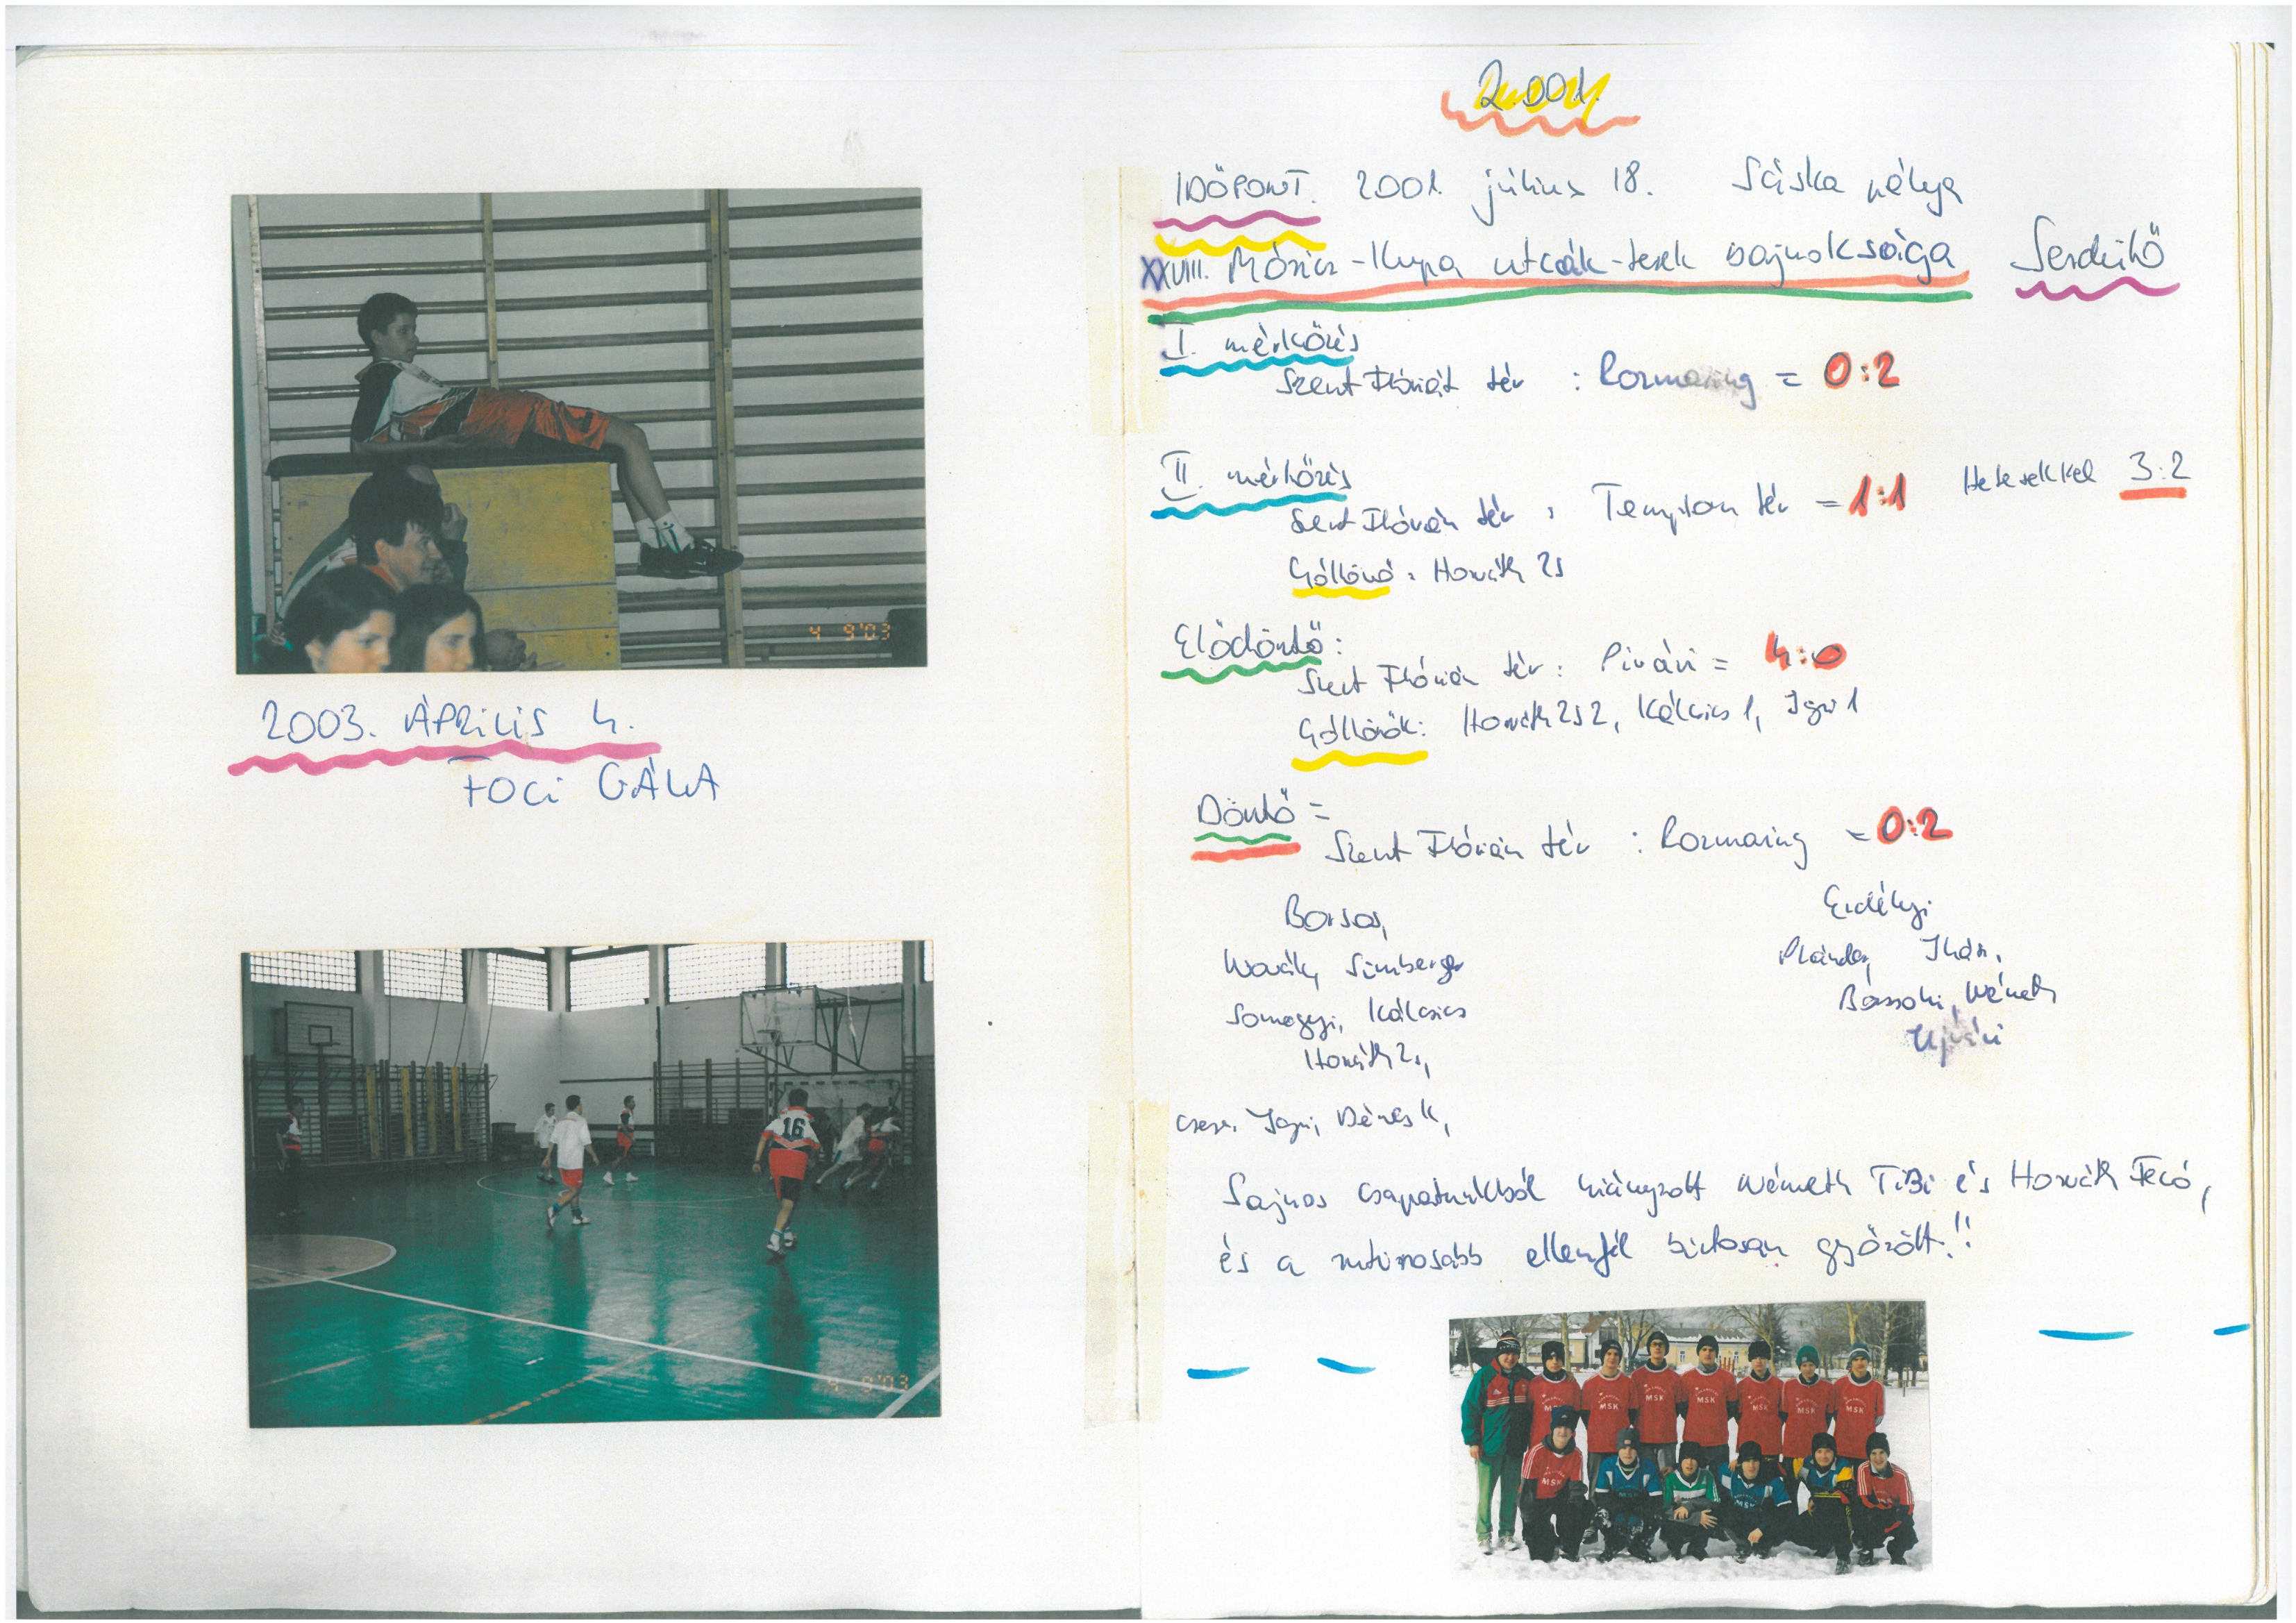 4 9'03
2003. ÁPRILIS 4.
FOCI GÁLA
16
4 9'03
2.001.
IDŐPONT. 2001. július 18. Sáska pálya
XXVIII. Móricz-Kupa utcák-terek bajnoksága Serdülő
I. mérkőzés
Szent Flórián tér : Rozmaring = 0:2
II. mérkőzés
Szent Flórián tér : Templom tér = 1:1 Hetesekkel 3:2
Góllövő: Horváth Zs
Elődöntő:
Szent Flórián tér: Pivári = 4:0
Góllövők: Horváth Zs 2, Kálcsics 1, 1
Döntő =
Szent Flórián tér : Rozmaring = 0:2
Borsos,
Erdélyi
Novák, Simberger
Somogyi, Kálcsics
Németh
Horváth Zs,
Újvári
csere. Dénes K,
Sajnos csapatunkból hiányzott Németh Tibi és Horváth Fecó,
és a rutinosabb ellenfél biztosan győzött!!
MSK MSK MSK MSK MSK MSK
MSK MSK MSK